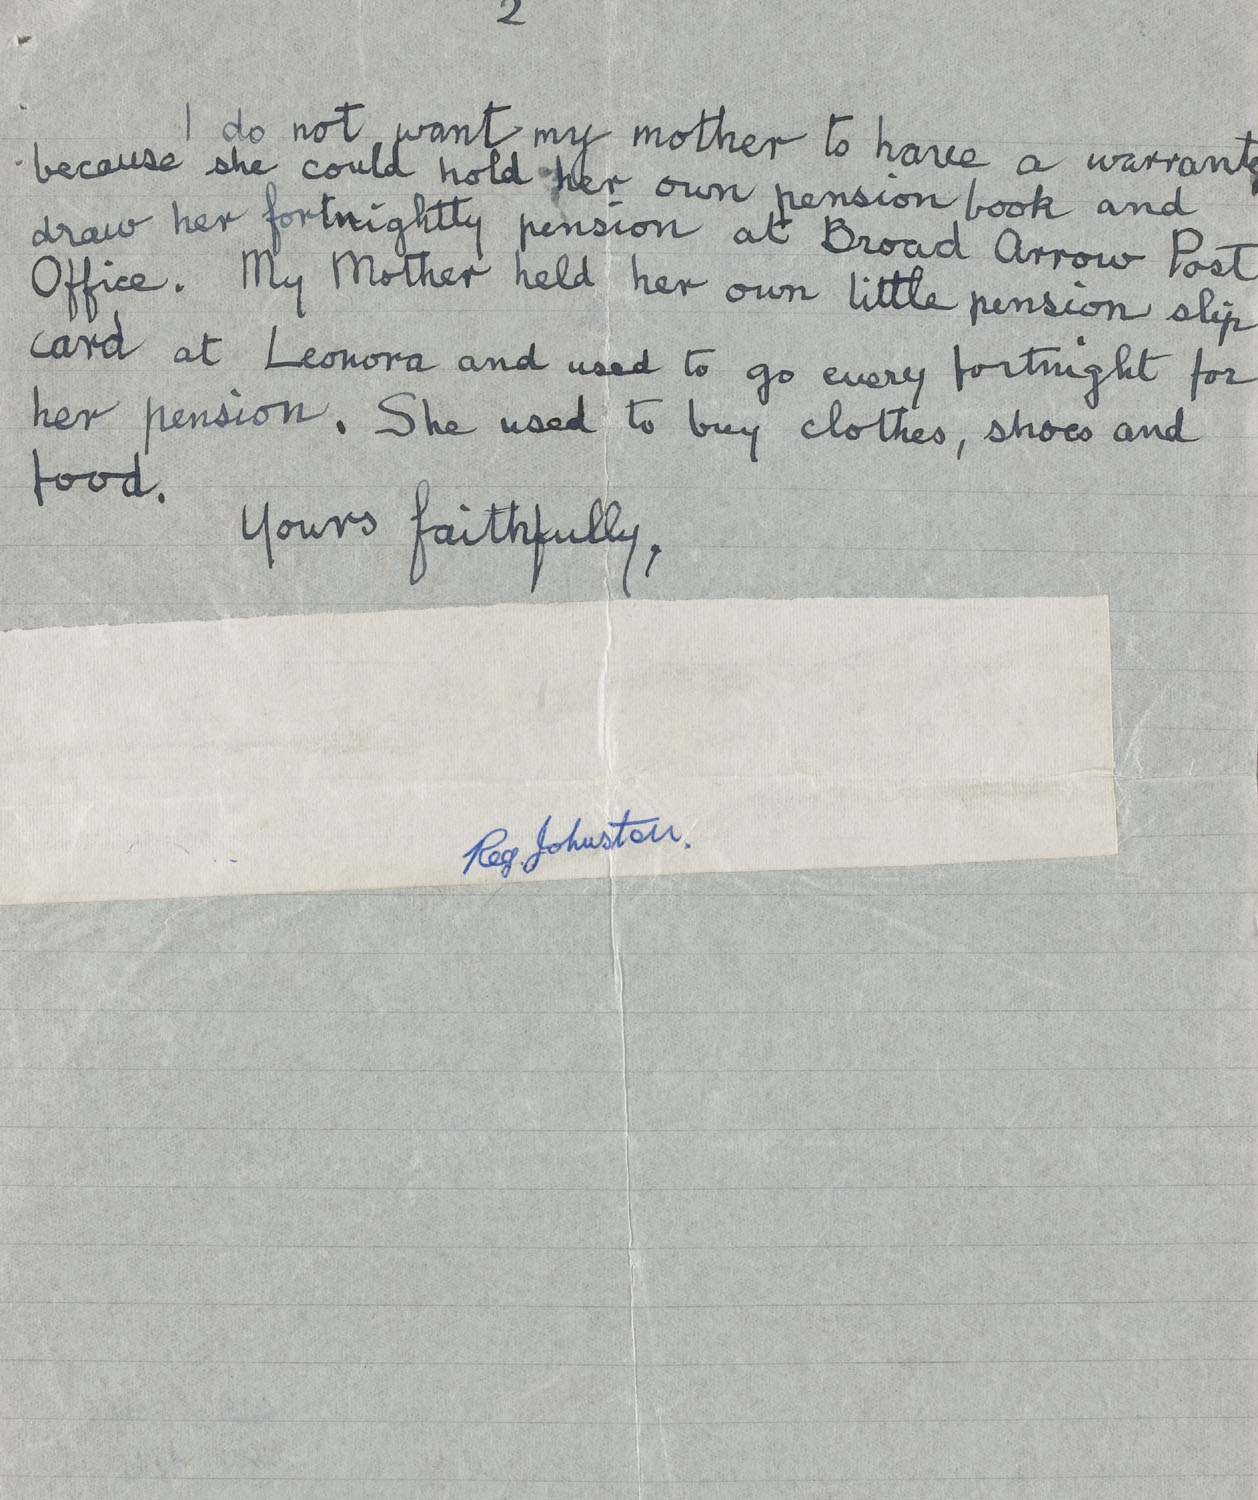 2
I do not want my mother to have a warrant
because she could hold her own pension book and
draw her fortnightly pension at Broad Arrow Post
Office. My Mother held her own little pension slip
card at Leonora and used to go every fortnight for
her pension. She used to buy clothes, shoes and
food.
Yours faithfully,
Reg. Johnston.